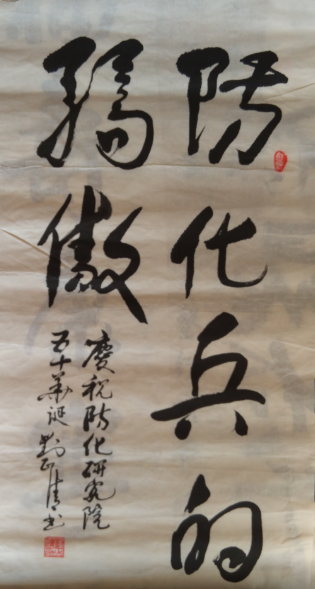 防化兵的
骄傲
庆祝防化研究院
五十华诞 刘正清书